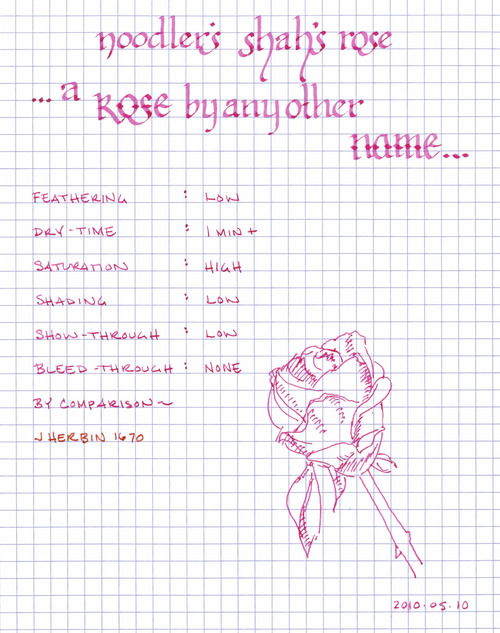 noodler's shah's rose
...a ROSE by any other
name...
FEATHERING : LOW
DRY-TIME : 1 MIN +
SATURATION : HIGH
SHADING : LOW
SHOW-THROUGH : LOW
BLEED-THROUGH : NONE
BY COMPARISON ~
J HERBIN 1670
2010.05.10